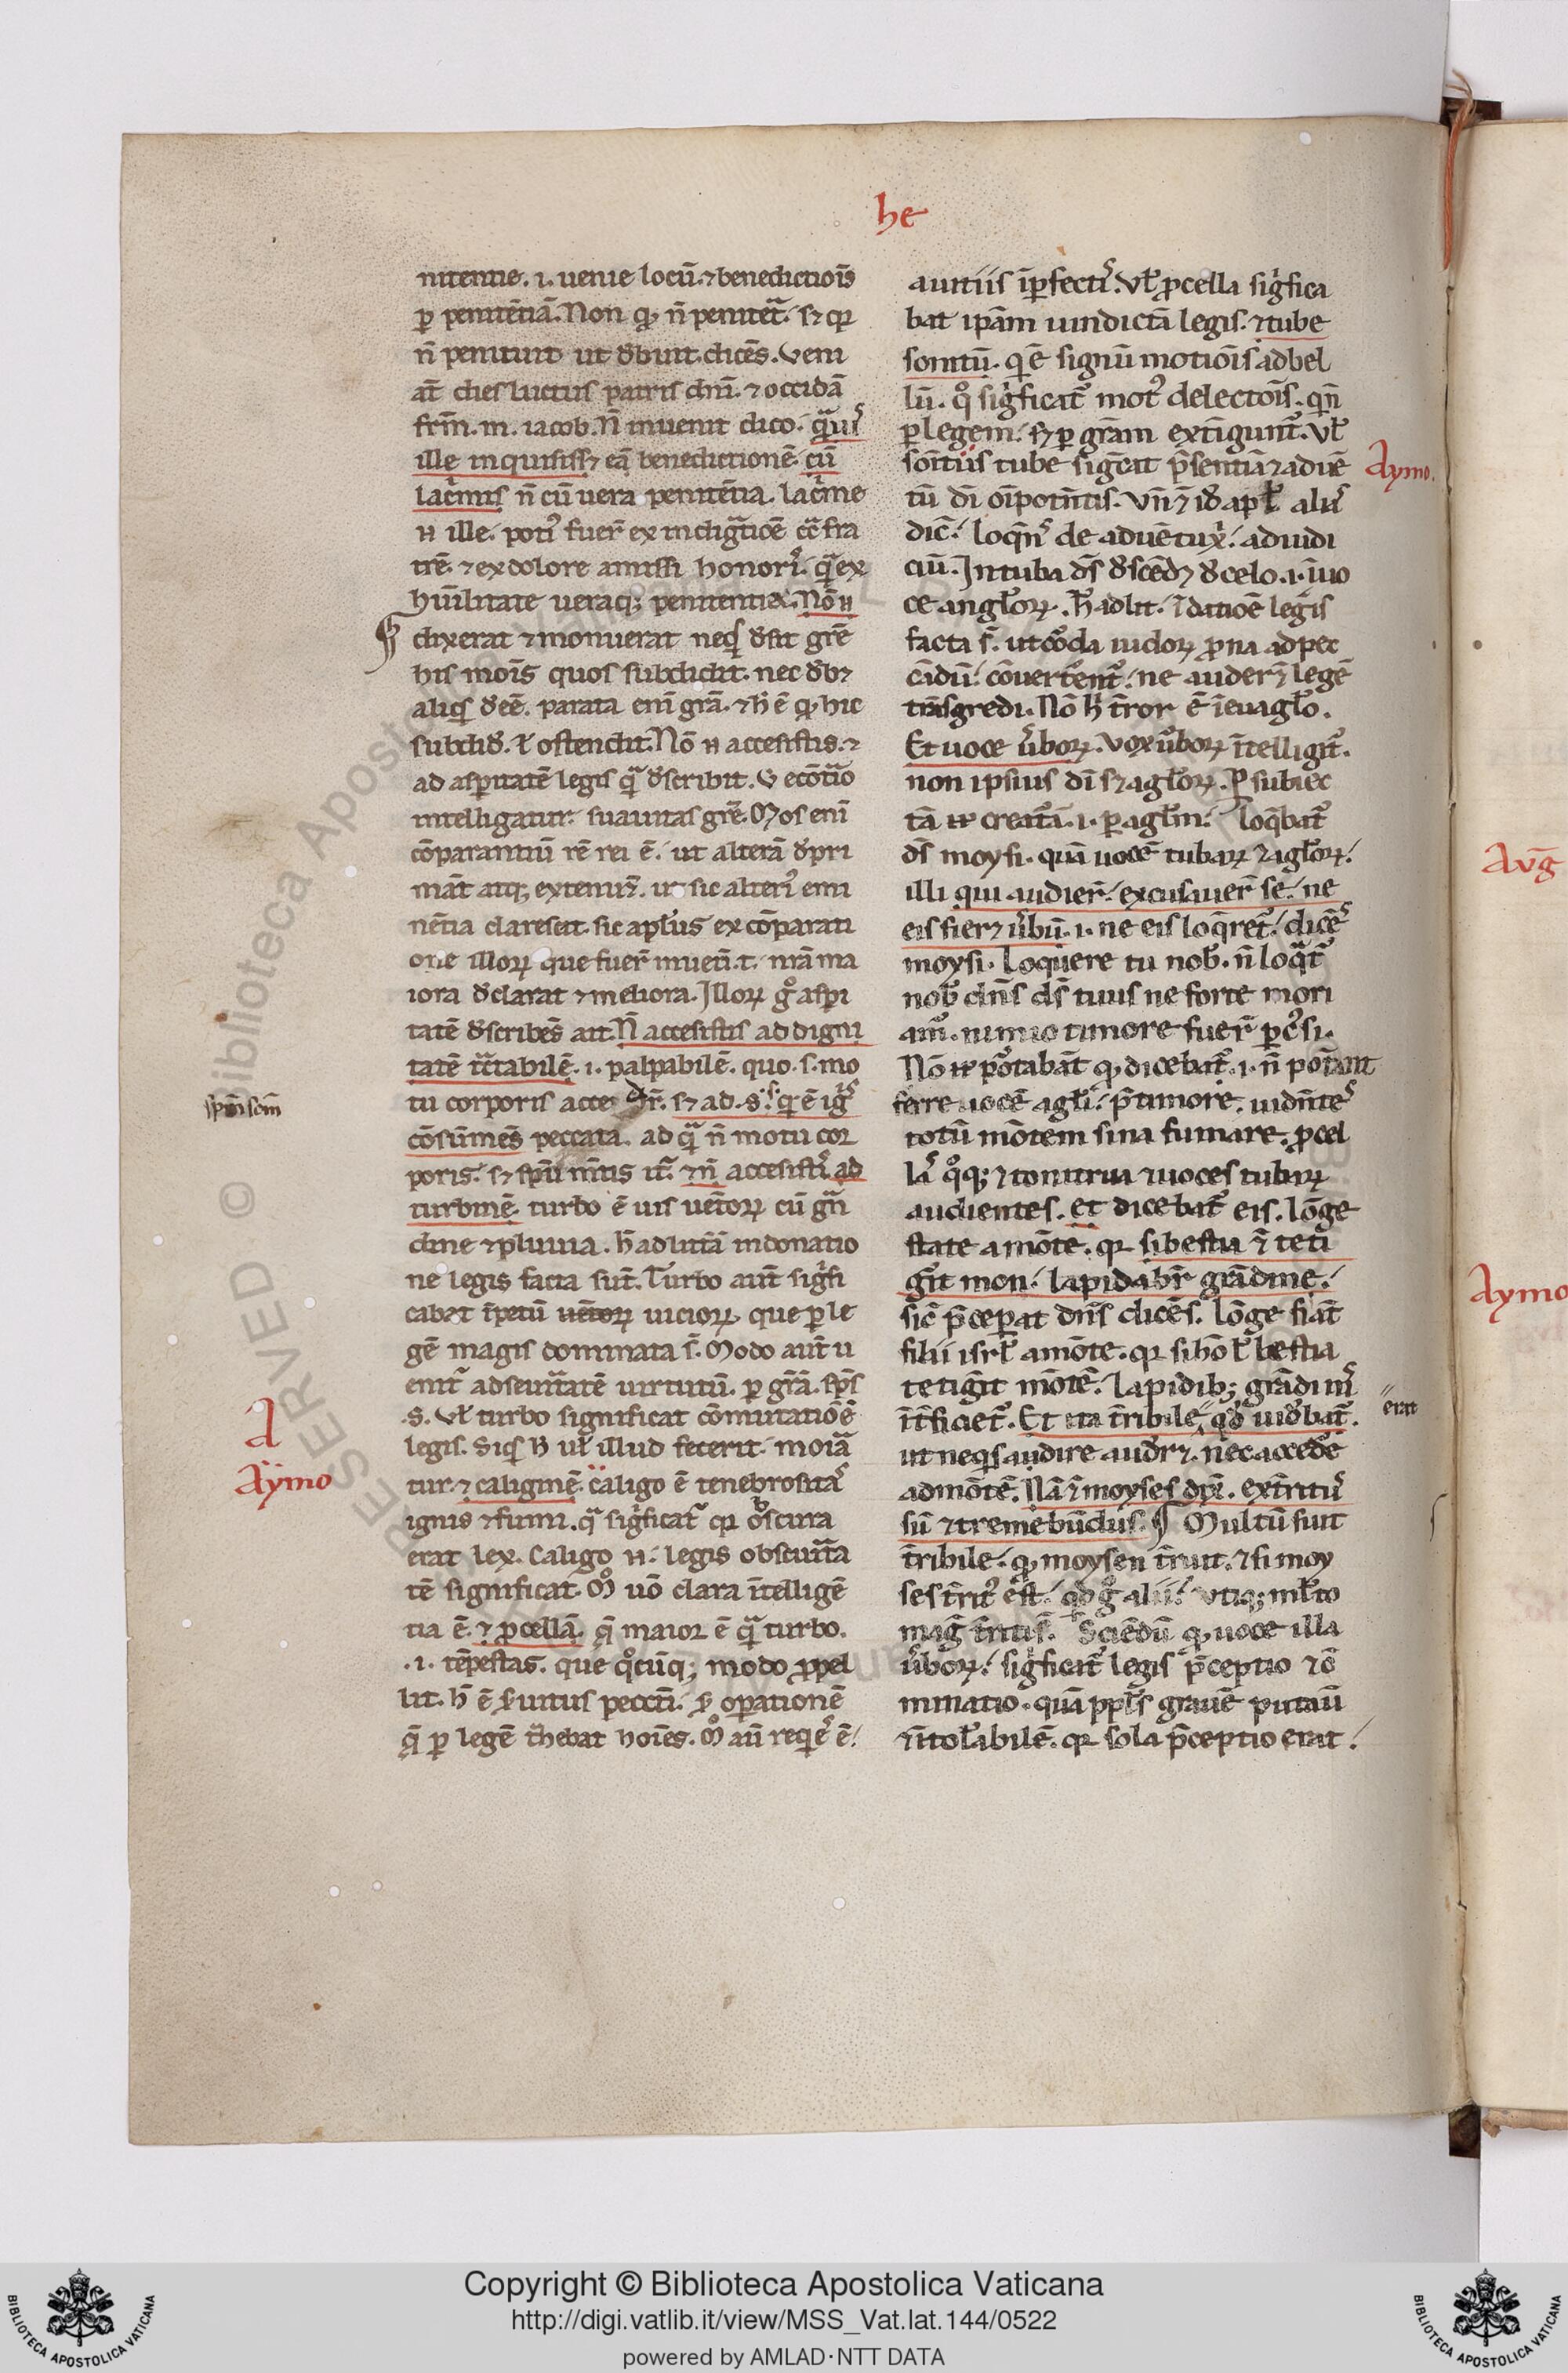 he
nitentie. i. uenie locū. ⁊ benedictiōis
ꝑ penitētiā. Non qꝫ n̄ penitet̄. sꝫ qꝛ
n̄ penituit ut debuit. dicēs. Veni
at̄ dies luctus patris dn̄i. ⁊ occidā
fr̄m. m. iacob. n̄ inuenit dico. qāuis
ille inquisissꝫ eā benedictionē cū
lac̄mis n̄ cū uera penitētia. lac̄me
n ille. poti᷒ fuer̄ ex indiḡtiōe cc̄ fra
trē. ⁊ ex dolore amissi honoris. qā ex
hūilitate ueraqꝫ penitentie. Nō n
dixerat ⁊ monuerat neqs desit grē
his mōis quos subdidit. nec debꝫ
aliqs deeē. parata enī grā. ⁊ h̄ ē qꝫ hic
subdit. ⁊ ostendit. Nō n accessistis. ⁊
ad asꝑitatē legis qā describit. ut ecōtrio
intelligatur suauitas grē. Mos enī
cōparantiū rē rei ē. ut alterā depri
māt atqꝫ extenuēt. ut sic alteri᷒ emi
nētia clarescat. sic apl̄us ex cōparati
one illoꝝ que fuer̄ in ueti. t. nr̄a ma
iora declarat ⁊ meliora. Illoꝝ gͦ asꝑi
tatē describēs ait. N̄ accessistis ad digni
tatē tc̄tabilē. i. palpabilē. quo. s. mo
tu corporis acce r̄. sꝫ ad. s. s. q ē igis
cōsūmēs peccata. ad qā n̄ motu cor
poris. sꝫ sp̄u mn̄tis it̄. ⁊ n̄ accessistis ad
turbinē. turbo ē uis uētoꝝ cū gn̄
dine ⁊ pluuia. h̄ ad litā in donatio
ne legis facta sūt. Turbo aut̄ sigfi
cabat īpetū uētoꝝ uicioꝝ que ꝑ le
gē magis dominata s̄. Modo aut̄ u
enit̄ ad seuitatē uirtutū. ꝑ grā. sp̄s
.s. ul̄ turbo significat cōmutatiōē
legis. Siqs n̄ ul̄ illud fecerit. moria
tur. ⁊ caliginē. caligo ē tenebrositas
ignis ⁊ fumi. qā sigficat̄ qꝛ obscura
erat lex. Caligo n. legis obscurita
tē significat. Mͦ uō clara ītelligē
tia ē. ⁊ ꝓcellā. q̄ maior ē qā turbo.
.i. tēpestas. que qͦcūqꝫ modo ꝓpel
lit. h̄ ē seruitus peccti. operationē
q̄ ꝑ legē thebat hoīes. Mͦ aū requies ē.
auitiis īꝑfectis. Vl̄ ꝓcella sigfica
bat ipām uindictā legis. ⁊ tube
sonitū. q ē signū motiōis ad bel
lū. qͦ sigficat̄ mot᷒ delectōis. q n̄
ꝑ legem. sꝫ ꝑ grām extīgunt̄. Vl̄
sonitus tube sigcat p̄sentiā ⁊ aduē
tū dī oīpotn̄tis. Vn̄ ⁊ id apl̄ alias
dic̄. loqn̄s de aduētu xi. ad iudi
ciū. In tuba ds̄ descēdꝫ de celo. i. ī uo
ce angl̄oꝝ. h̄ ad lit. ī datiōe legis
facta s̄. ut corda iudoꝝ ꝓna ad pec
cādū. cōuertent̄. ne auderēt legē
trāsgredi. Nō h̄ tror ē ī euāglo.
Et uoce ūboꝝ. Vox ūboꝝ ītelligit̄.
non ipsius dī sꝫ āgloꝝ. ꝑ subiec
tā creatā. i. ꝑ āglm. loqbat̄
ds̄ moysi. quā uocē tubaꝝ ⁊ āgloꝝ.
illi qui audier̄. excusauer̄ se. ne
eis fierꝫ ūbū. i. ne eis loqret̄. dicēs
moysi. Loquere tu nob̄. n̄ loqāt
nob̄ dn̄s ds̄ tuus ne forte mori
am᷒. nimio timore fuer̄ ꝑcsi.
Nō portabāt qꝫ dicebat̄. i. n̄ potāt
ferre uocē āgli. p̄ timore. uidn̄tes
totū mōtem sina fumare. ꝓcel
las qͦqꝫ ⁊ tonitrua ⁊ uoces tubaꝝ
audientes. et dicebat̄ eis. lōge
state a mōte. qꝛ si bestia ⁊ teti
git mon. lapidabr̄ grādine.
sic̄ p̄ceꝑat dn̄s dicēs. lōge fiāt
filii isrl̄ a mōte. qꝛ si hō l̄ bestia
tetigit mōtē. lapidibꝫ grādinis
īt̄ficiet̄. Et ita tribile, qd uidebat̄.
ut neqs audire auderꝫ. nec accedē
ad mōtē. Nā ⁊ moyses dix. extritus
sū ⁊ tremebūdus. ¶ Multū fuit
tribile. qꝫ moysen truit. ⁊ si moy
ses trit᷒ est. qd gͦ alii. utiqꝫ ml̄to
mag tritis̄. Sciēdū qꝫ uoce illa
ūboꝝ. sigficat̄ legis p̄ceptio ⁊ cō
minatio. quā ppl̄s grauē putaū
⁊ ītol̄abilē. qꝛ sola p̄ceptio erat.
Aymo.
sp̄m scm̄
A
Aymo
erat
Aug̅
Aymo
Copyright © Biblioteca Apostolica Vaticana
http://digi.vatlib.it/view/MSS_Vat.lat.144/0522
powered by AMLAD·NTT DATA
BIBLIOTECA APOSTOLICA VATICANA
BIBLIOTECA APOSTOLICA VATICANA